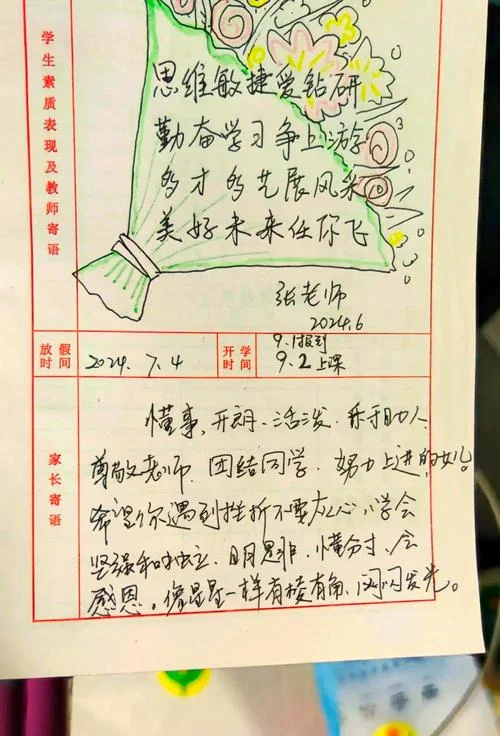 学生素质表现及教师寄语
思维敏捷爱钻研
勤奋学习争上游
多才多艺展风采
美好未来任你飞
张老师
2024.6
放假时间
2024.7.4
开学时间
9.1报到
9.2上课
家长寄语
懂事,开朗、活泼、乐于助人
尊敬老师、团结同学、努力上进的女儿。
希望你遇到挫折不要灰心,学会
坚强和独立、明是非、懂分寸、会
感恩。像星星一样有棱有角、闪闪发光。